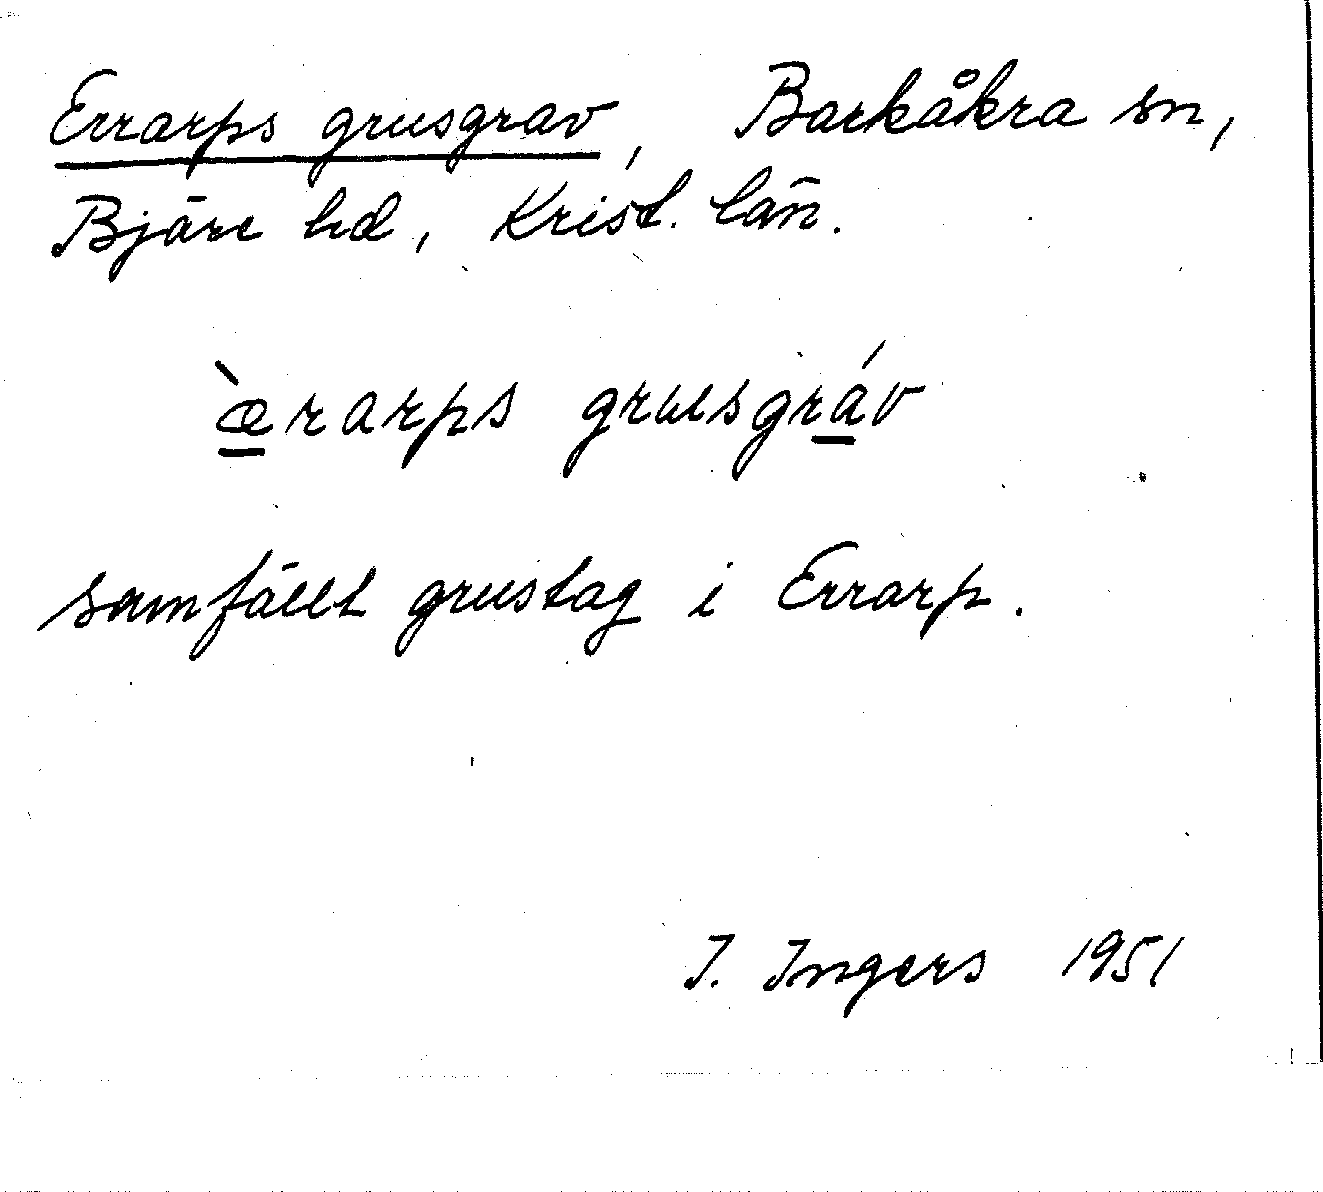 Errarps grusgrav, Barkåkra sn,
Bjäre hd, Krist. län.
æ̱̀rarps grusgrá̱v
samfällt grustag i Errarp.
I. Ingers 1951